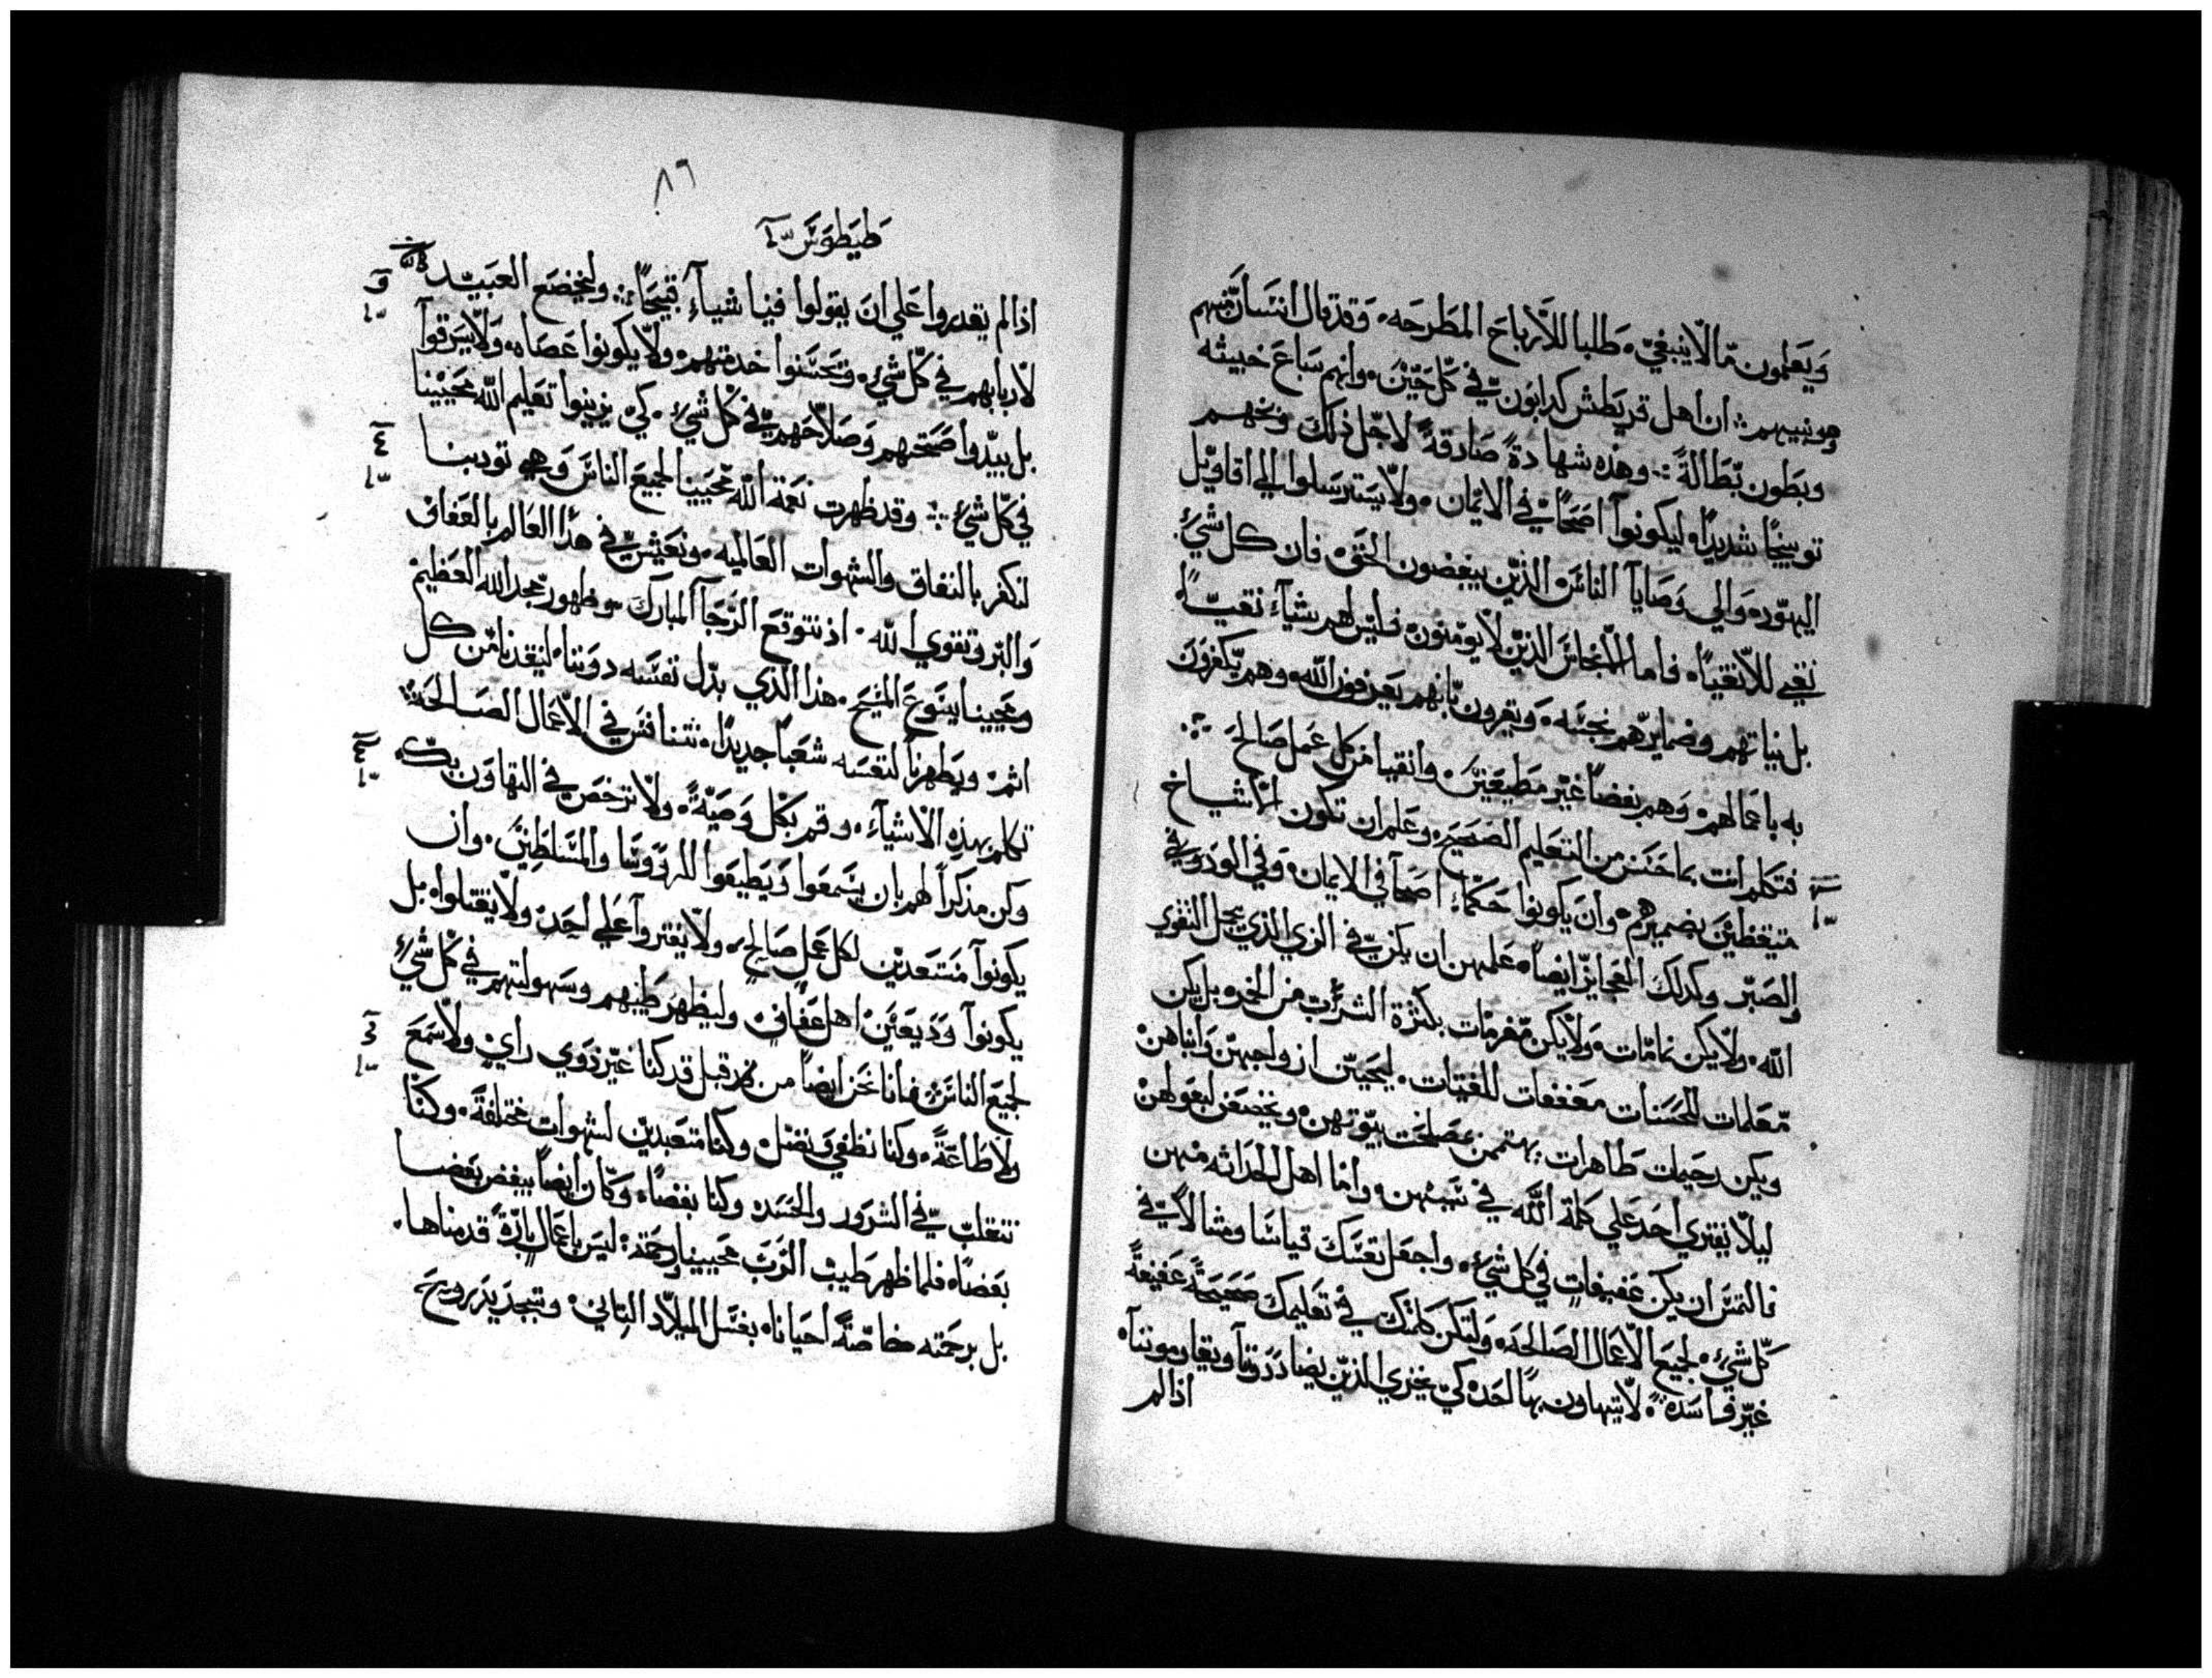 ويعلمون ما لا ينبغي، طلبا للارباح المطرحه، وقد قال انسان منهم
وهو نبيهم: ان اهل قريطش كدابون في كل حين، وانهم سباع خبيثه
وبطون بطالة: وهذه شهادة صادقة لاجل ذلك وبخهم
توبيخا شديدا، ليكونوا اصحا في الايمان، ولا يسترسلوا الي اقاويل
اليهود، والي وصايا الناس الذين يبغضون الحق، فان كل شيء
نقي للانقيا، فاما الانجاس الذين لا يومنون، فليس لهم شيآء نقيا،
بل نياتهم وضمايرهم نجسه، ويقرون بانهم يعرفون الله، وهم يكفرون
به باعمالهم، وهم بغضا غير مطيعين، وانقيا من كل عمل صالح
فتكلم انت بما حسن من التعليم الصحيح، وعلم ان تكون الاشياخ
متيقظين بضميرهم، وان يكونوا حكماء اصحآ في الايمان، وفي الود وفي
الصبر وكدلك العجايز ايضا، علمهن ان يكن في الزي الذي يحل التقوي
الله، ولا يكن نمامات، ولا يكن مغرمات بكثرة الشراب من الخمر، بل يكن
معلمات للحسنات معففات للفتيات، ليحبين ازواجهن وابناهن
ويكن رحيمات طاهرات، يهتممن بمصلحت بيوتهن، ويخضعن لبعولهن
ليلا يفتري احد علي كلمة الله في سببهن، واما اهل الحداثه منهن
فالتمس ان يكن عفيفات في كل شيء، واجعل نفسك قياسا ومثالا في
كل شيء، لجميع الاعمال الصالحه، ولتكن كلمتك في تعليمك صحيحة عفيفة
غير فاسده، لا يتهاون بها احد، كي يخزي الذين يضاددونا ويقاوموننا،
اذا لم
٨٦
طيطوس
اذا لم يقدروا علي ان يقولوا فينا شيآء قبيحا: وليخضع العبيد
لاربابهم في كل شيء، وتحسنوا خدمتهم، ولا يكونوا عصاه، ولا يسرقوا
بل يبدوا صحتهم وصلاحهم في كل شيء، كي يزينوا تعليم الله محيينا
في كل شيء: وقد ظهرت نعمة الله محيينا لجميع الناس وهي تودبنا
لنكفر بالنفاق والشهوات العالميه، ونعيش في هذا العالم بالعفاف
والبر وتقوي الله، اذ نتوقع الرجآ المبارك، وظهور مجد الله العظيم
ومحيينا ايسوع المسيح، هذا الذي بدل نفسه دوننا، لينقذنا من كل
اثم، ويطهرنا لنفسه شعبا جديدا، نتنافس في الاعمال الصالحة
تكلم بهذه الاشيآء، وقم بكل وصية، ولا ترخص في التهاون بك
وكن مذكرا لهم بان يسمعوا ويطيعوا للروسا والمسلطين، وان
يكونوا مستعدين لكل عمل صالح، ولا يفتروا علي احد، ولا يقتتلوا، بل
يكونوا وديعين اهل عفاف، وليظهر طيبهم وسهولتهم في كل شيء
لجميع الناس فانا نحن ايضا من قبل قد كنا غير ذوي راي، ولا سمع
ولا طاعة، وكنا نطغي ونضل وكنا متعبدين لشهوات مختلفة، وكنا
نتقلب في الشرور والحسد، وكنا بغضا، وكان ايضا يبغض بعضنا
بعضا، فلما ظهر طيب الرب محيينا ورحمته: ليس باعمال بارة قدمناها،
بل برحمته خاصة احيانا، بغسل الميلاد الثاني، وتجديد روح